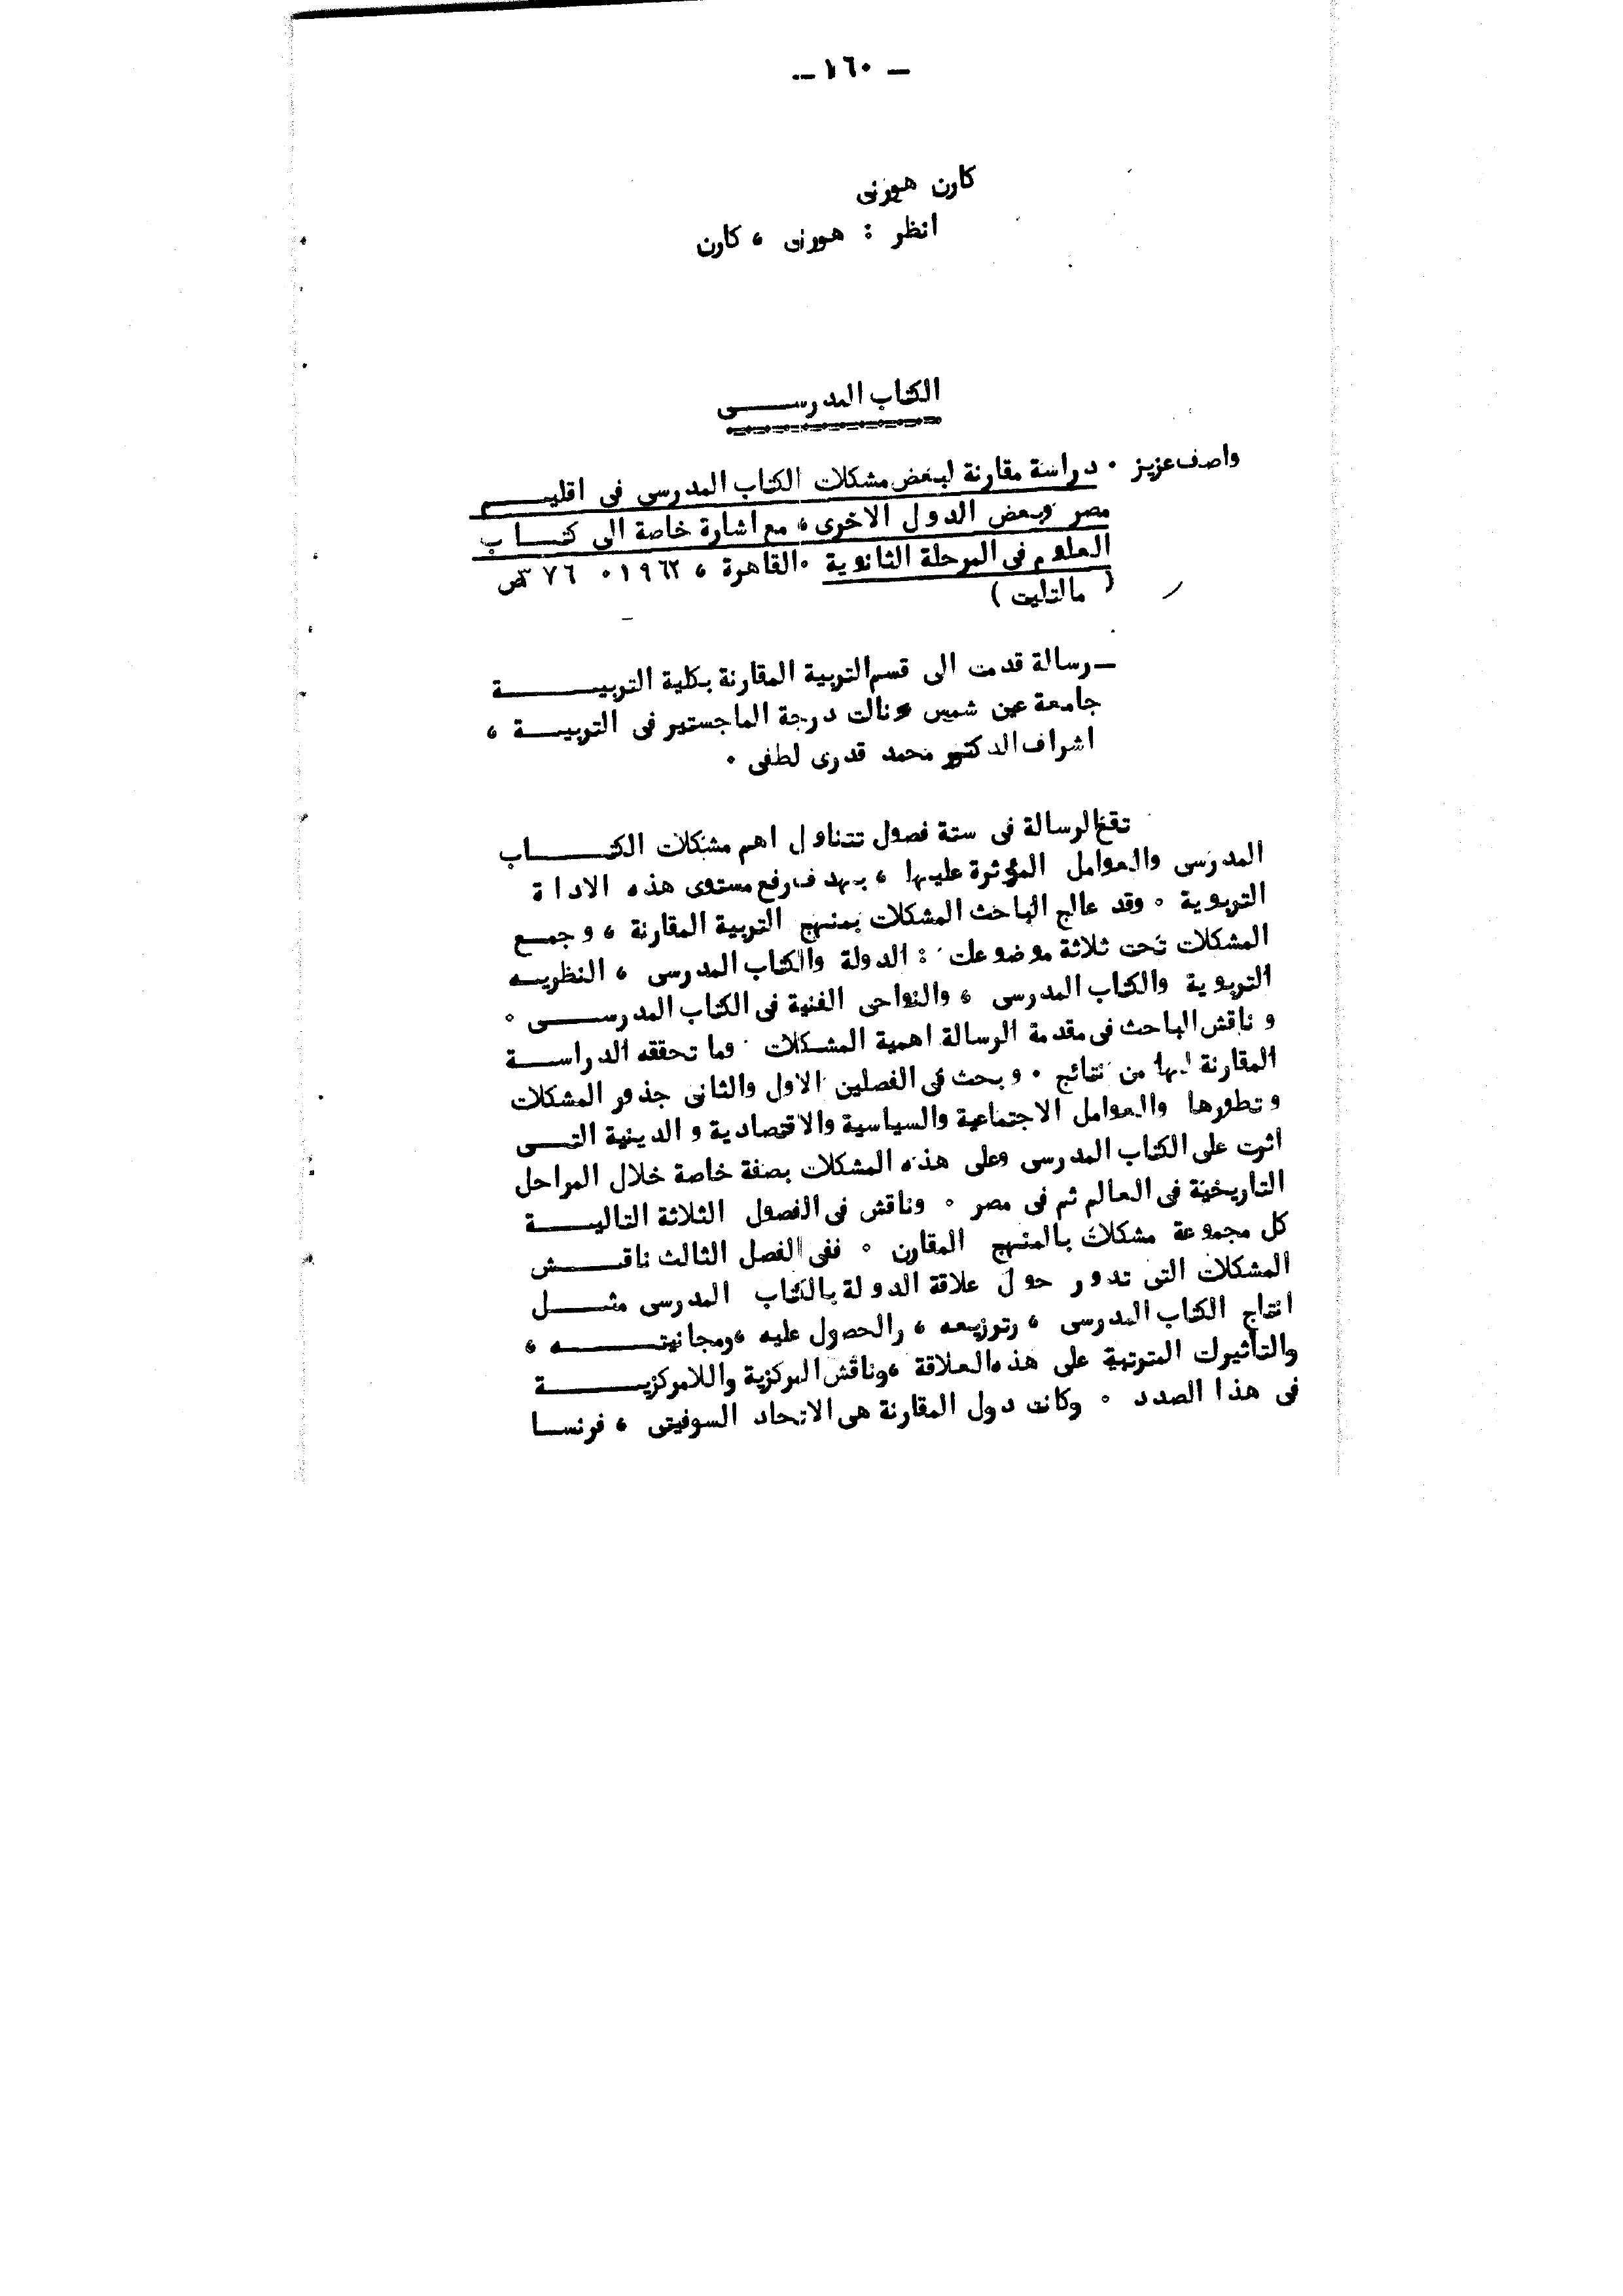 — ١٦٠ —
كارن هورنى
انظر : هورنى ، كارن
الكتاب المدرسى
واصف عزيز ٠ دراسة مقارنة لبعض مشكلات الكتاب المدرسى فى اقليم
مصر وبعض الدول الاخرى ، مع اشارة خاصة الى كتاب
العلوم فى المرحلة الثانوية ٠ القاهرة ، ١٩٦٢ ٠ ٣٧٦ ص
( مالتليت )
— رسالة قدمت الى قسم التربية المقارنة بكلية التربية
جامعة عين شمس ونالت درجة الماجستير فى التربية ،
اشراف الدكتور محمد قدرى لطفى ٠
تقع الرسالة فى ستة فصول تتناول اهم مشكلات الكتاب
المدرسى والعوامل المؤثرة عليها ، بهدف رفع مستوى هذه الاداة
التربوية ٠ وقد عالج الباحث المشكلات بمنهج التربية المقارنة ، وجمع
المشكلات تحت ثلاثة موضوعات : الدولة والكتاب المدرسى ، النظريه
التربوية والكتاب المدرسى ، والنواحى الفنية فى الكتاب المدرسى ٠
وناقش الباحث فى مقدمة الرسالة اهمية المشكلات وما تحققه الدراسة
المقارنة لها من نتائج ٠ وبحث فى الفصلين الاول والثانى جذور المشكلات
وتطورها والعوامل الاجتماعية والسياسية والاقتصادية والدينية التى
اثرت على الكتاب المدرسى وعلى هذه المشكلات بصفة خاصة خلال المراحل
التاريخية فى العالم ثم فى مصر ٠ وناقش فى الفصول الثلاثة التالية
كل مجموعة مشكلات بالمنهج المقارن ٠ ففى الفصل الثالث ناقش
المشكلات التى تدور حول علاقة الدولة بالكتاب المدرسى مثل
انتاج الكتاب المدرسى ، وتوزيعه ، والحصول عليه ، ومجانيته ،
والتأثيرات المترتبة على هذه العلاقة ، وناقش المركزية واللامركزية
فى هذا الصدد ٠ وكانت دول المقارنة هى الاتحاد السوفيتى ، فرنسا